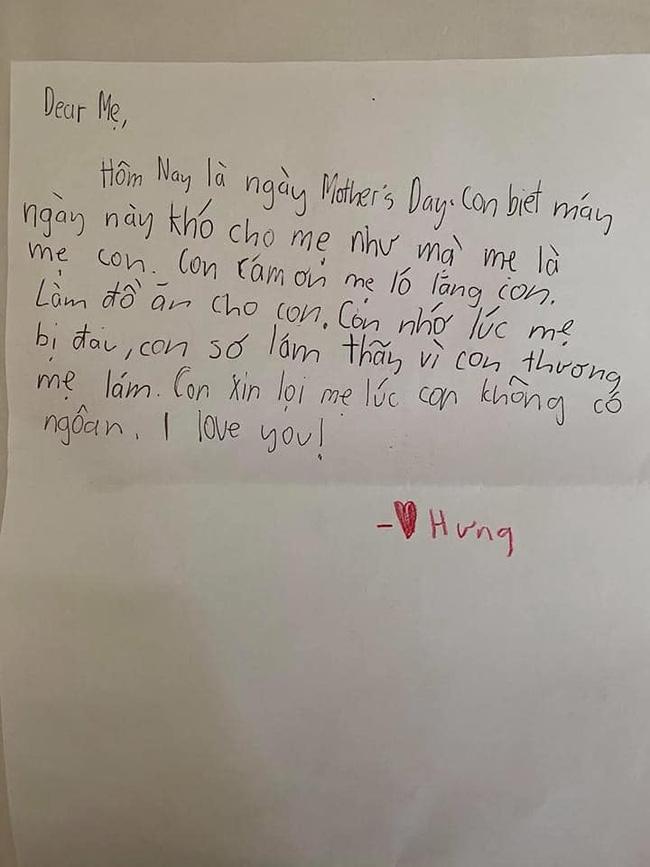 Dear Mẹ,
Hôm Nay là ngày Mother's Day. Con biết máy
ngày này khó cho mẹ như mà mẹ là
mẹ con. Con cám ơn mẹ ló lắng con.
Làm đồ ăn cho con. Con nhớ lúc mẹ
bị đau, con sớ lám thẫy vì con thương
mẹ lám. Con xin lọi mẹ lúc con không có
ngôan. I love you!
-♥ Hưng